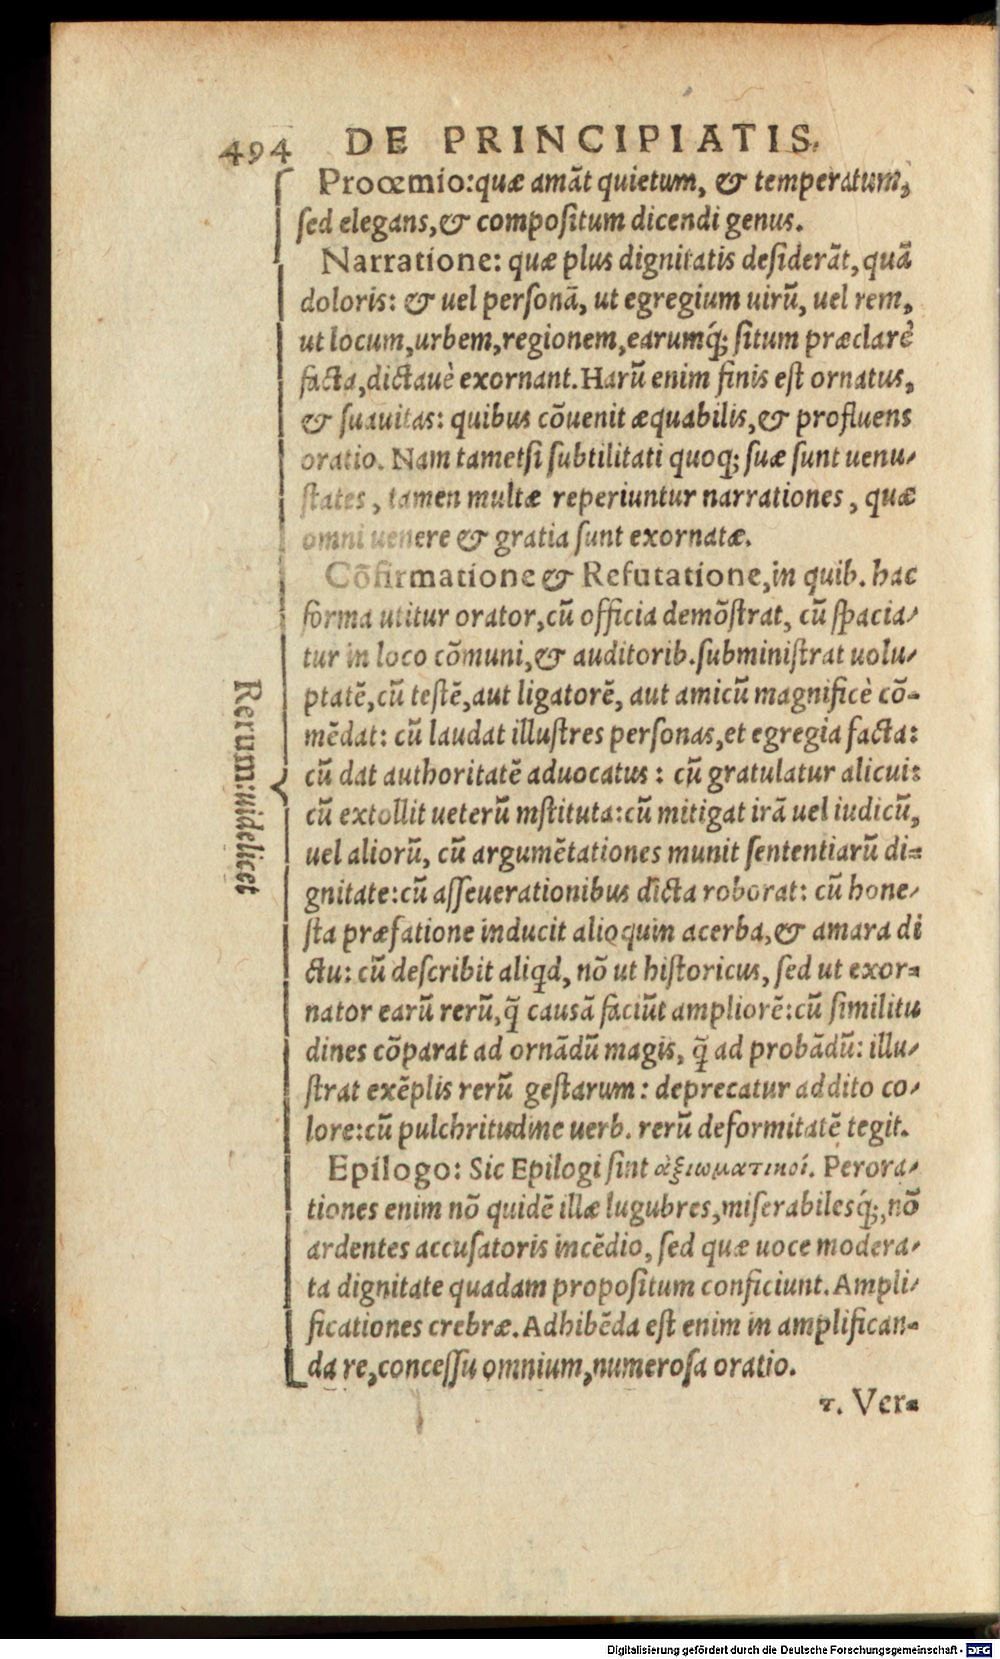 494 DE PRINCIPIATIS.
Proœmio: quæ amãt quietum, & temperatum,
sed elegans, & compositum dicendi genus.
Narratione: quæ plus dignitatis desiderãt, quã
doloris: & uel personã, ut egregium uirũ, uel rem,
ut locum, urbem, regionem, earumq́; situm præclarè
facta, dictauè exornant. Harũ enim finis est ornatus,
& suauitas: quibus cõuenit æquabilis, & profluens
oratio. Nam tametsi subtilitati quoq; suæ sunt uenu-
states, tamen multæ reperiuntur narrationes, quæ
omni uenere & gratia sunt exornatæ.
Cõfirmatione & Refutatione, in quib. hac
forma utitur orator, cũ officia demõstrat, cũ spacia-
tur in loco cõmuni, & auditorib. subministrat uolu-
ptatẽ, cũ testẽ, aut ligatorẽ, aut amicũ magnificè cõ-
mẽdat: cũ laudat illustres personas, et egregia facta:
cũ dat authoritatẽ aduocatus: cũ gratulatur alicui:
cũ extollit ueterũ instituta: cũ mitigat irã uel iudicũ,
uel aliorũ, cũ argumẽtationes munit sententiarũ di-
gnitate: cũ asseuerationibus dicta roborat: cũ hone-
sta præfatione inducit alioquin acerba, & amara di
ctu: cũ describit aliqd, nõ ut historicus, sed ut exor-
nator earũ rerũ, q̃ causã faciũt ampliorẽ: cũ similitu
dines cõparat ad ornãdũ magis, q̃ ad probãdũ: illu-
strat exẽplis rerũ gestarum: deprecatur addito co-
lore: cũ pulchritudine uerb. rerũ deformitatẽ tegit.
Epilogo: Sic Epilogi sint ἀξιωματικοί. Perora-
tiones enim nõ quidẽ illæ lugubres, miserabilesq́;, nõ
ardentes accusatoris incẽdio, sed quæ uoce modera-
ta dignitate quadam propositum conficiunt. Ampli-
ficationes crebræ. Adhibẽda est enim in amplifican-
da re, concessu omnium, numerosa oratio.
Rerum: uidelicet
2. Ver-
Digitalisierung gefördert durch die Deutsche Forschungsgemeinschaft - DFG